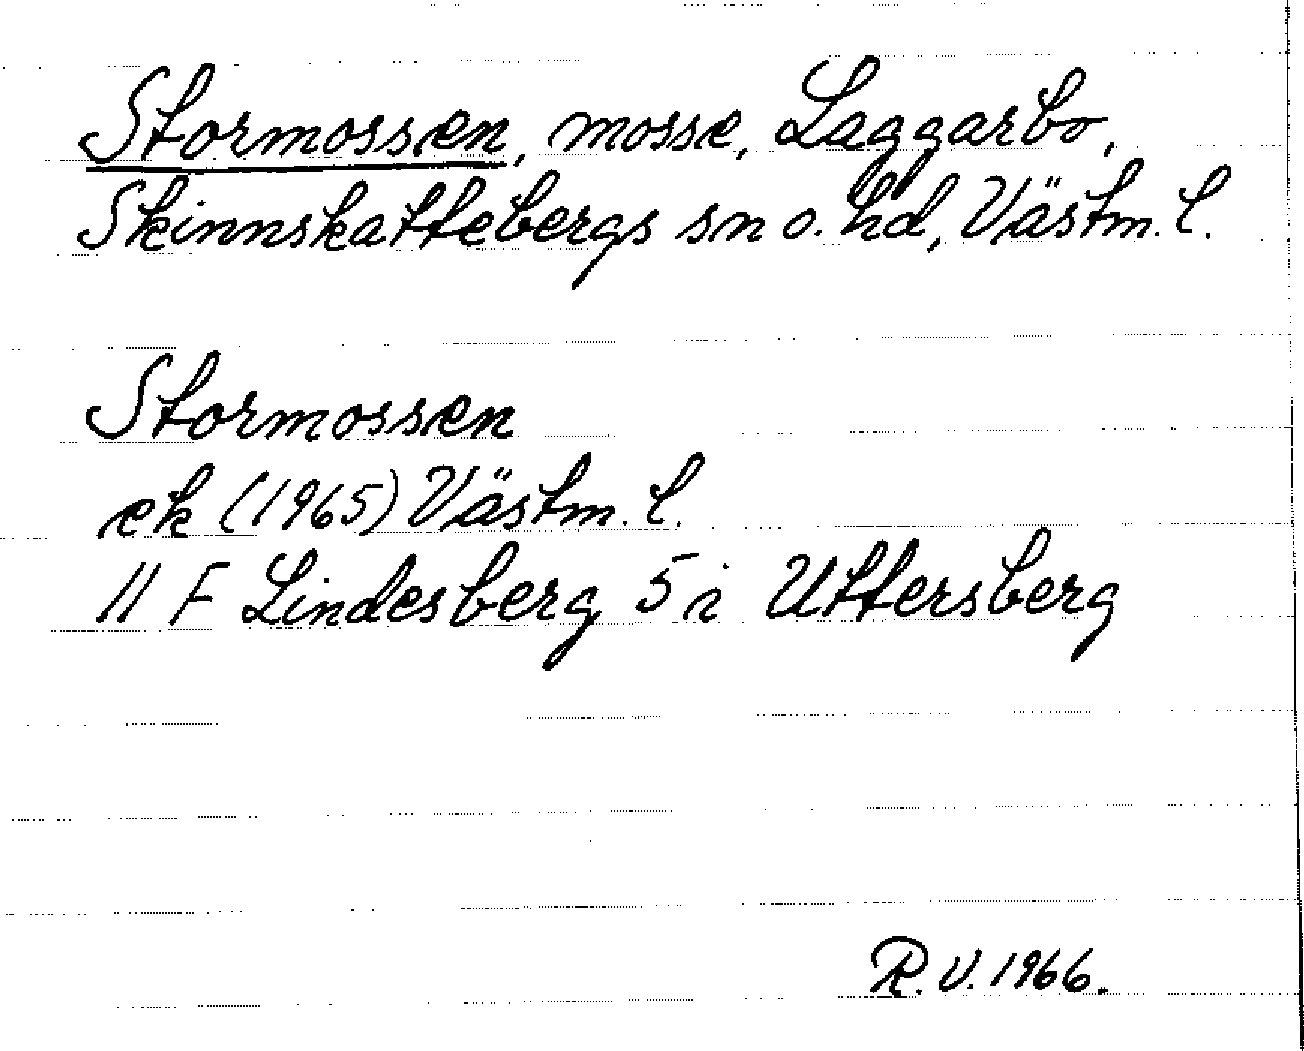 Stormossen, mosse, Laggarbo,
Skinnskattebergs sn o. hd, Västm. l.
Stormossen
ek (1965) Västm. l.
11 F Lindesberg 5 i Uttersberg
R.V. 1966.